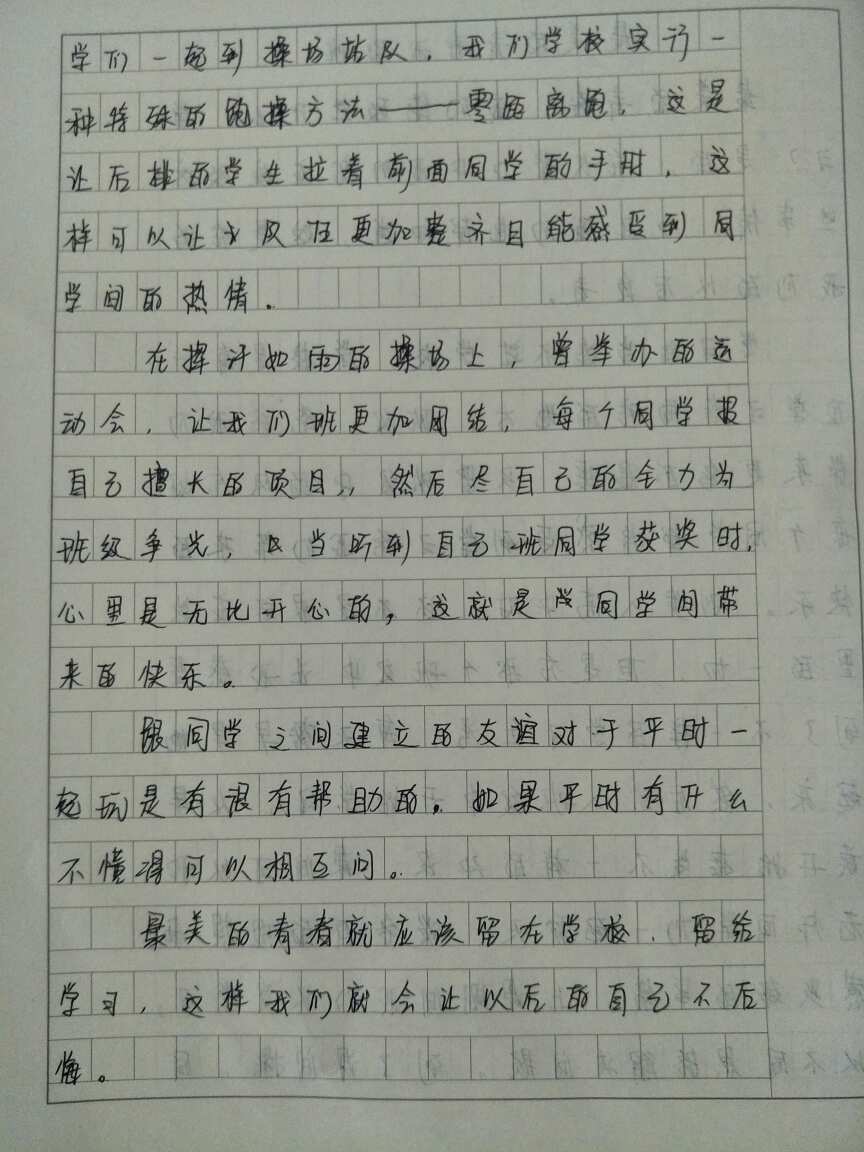 学们一起到操场站队，我们学校实行一
种特殊的跑操方法——零距离跑，这是
让后排的学生拉着前面同学的手肘，这
样可以让方队在更加整齐且能感受到同
学间的热情。
在挥汗如雨的操场上，曾举办的运
动会，让我们班更加团结，每个同学报
自己擅长的项目,，然后尽自己的全力为
班级争先，当听到自己班同学获奖时，
心里是无比开心的，这就是同学间带
来的快乐。
跟同学之间建立的友谊对于平时一
起玩是有很有帮助的。如果平时有什么
不懂得可以相互问。
最美的青春就应该留在学校，留给
学习，这样我们就会让以后的自己不后
悔。